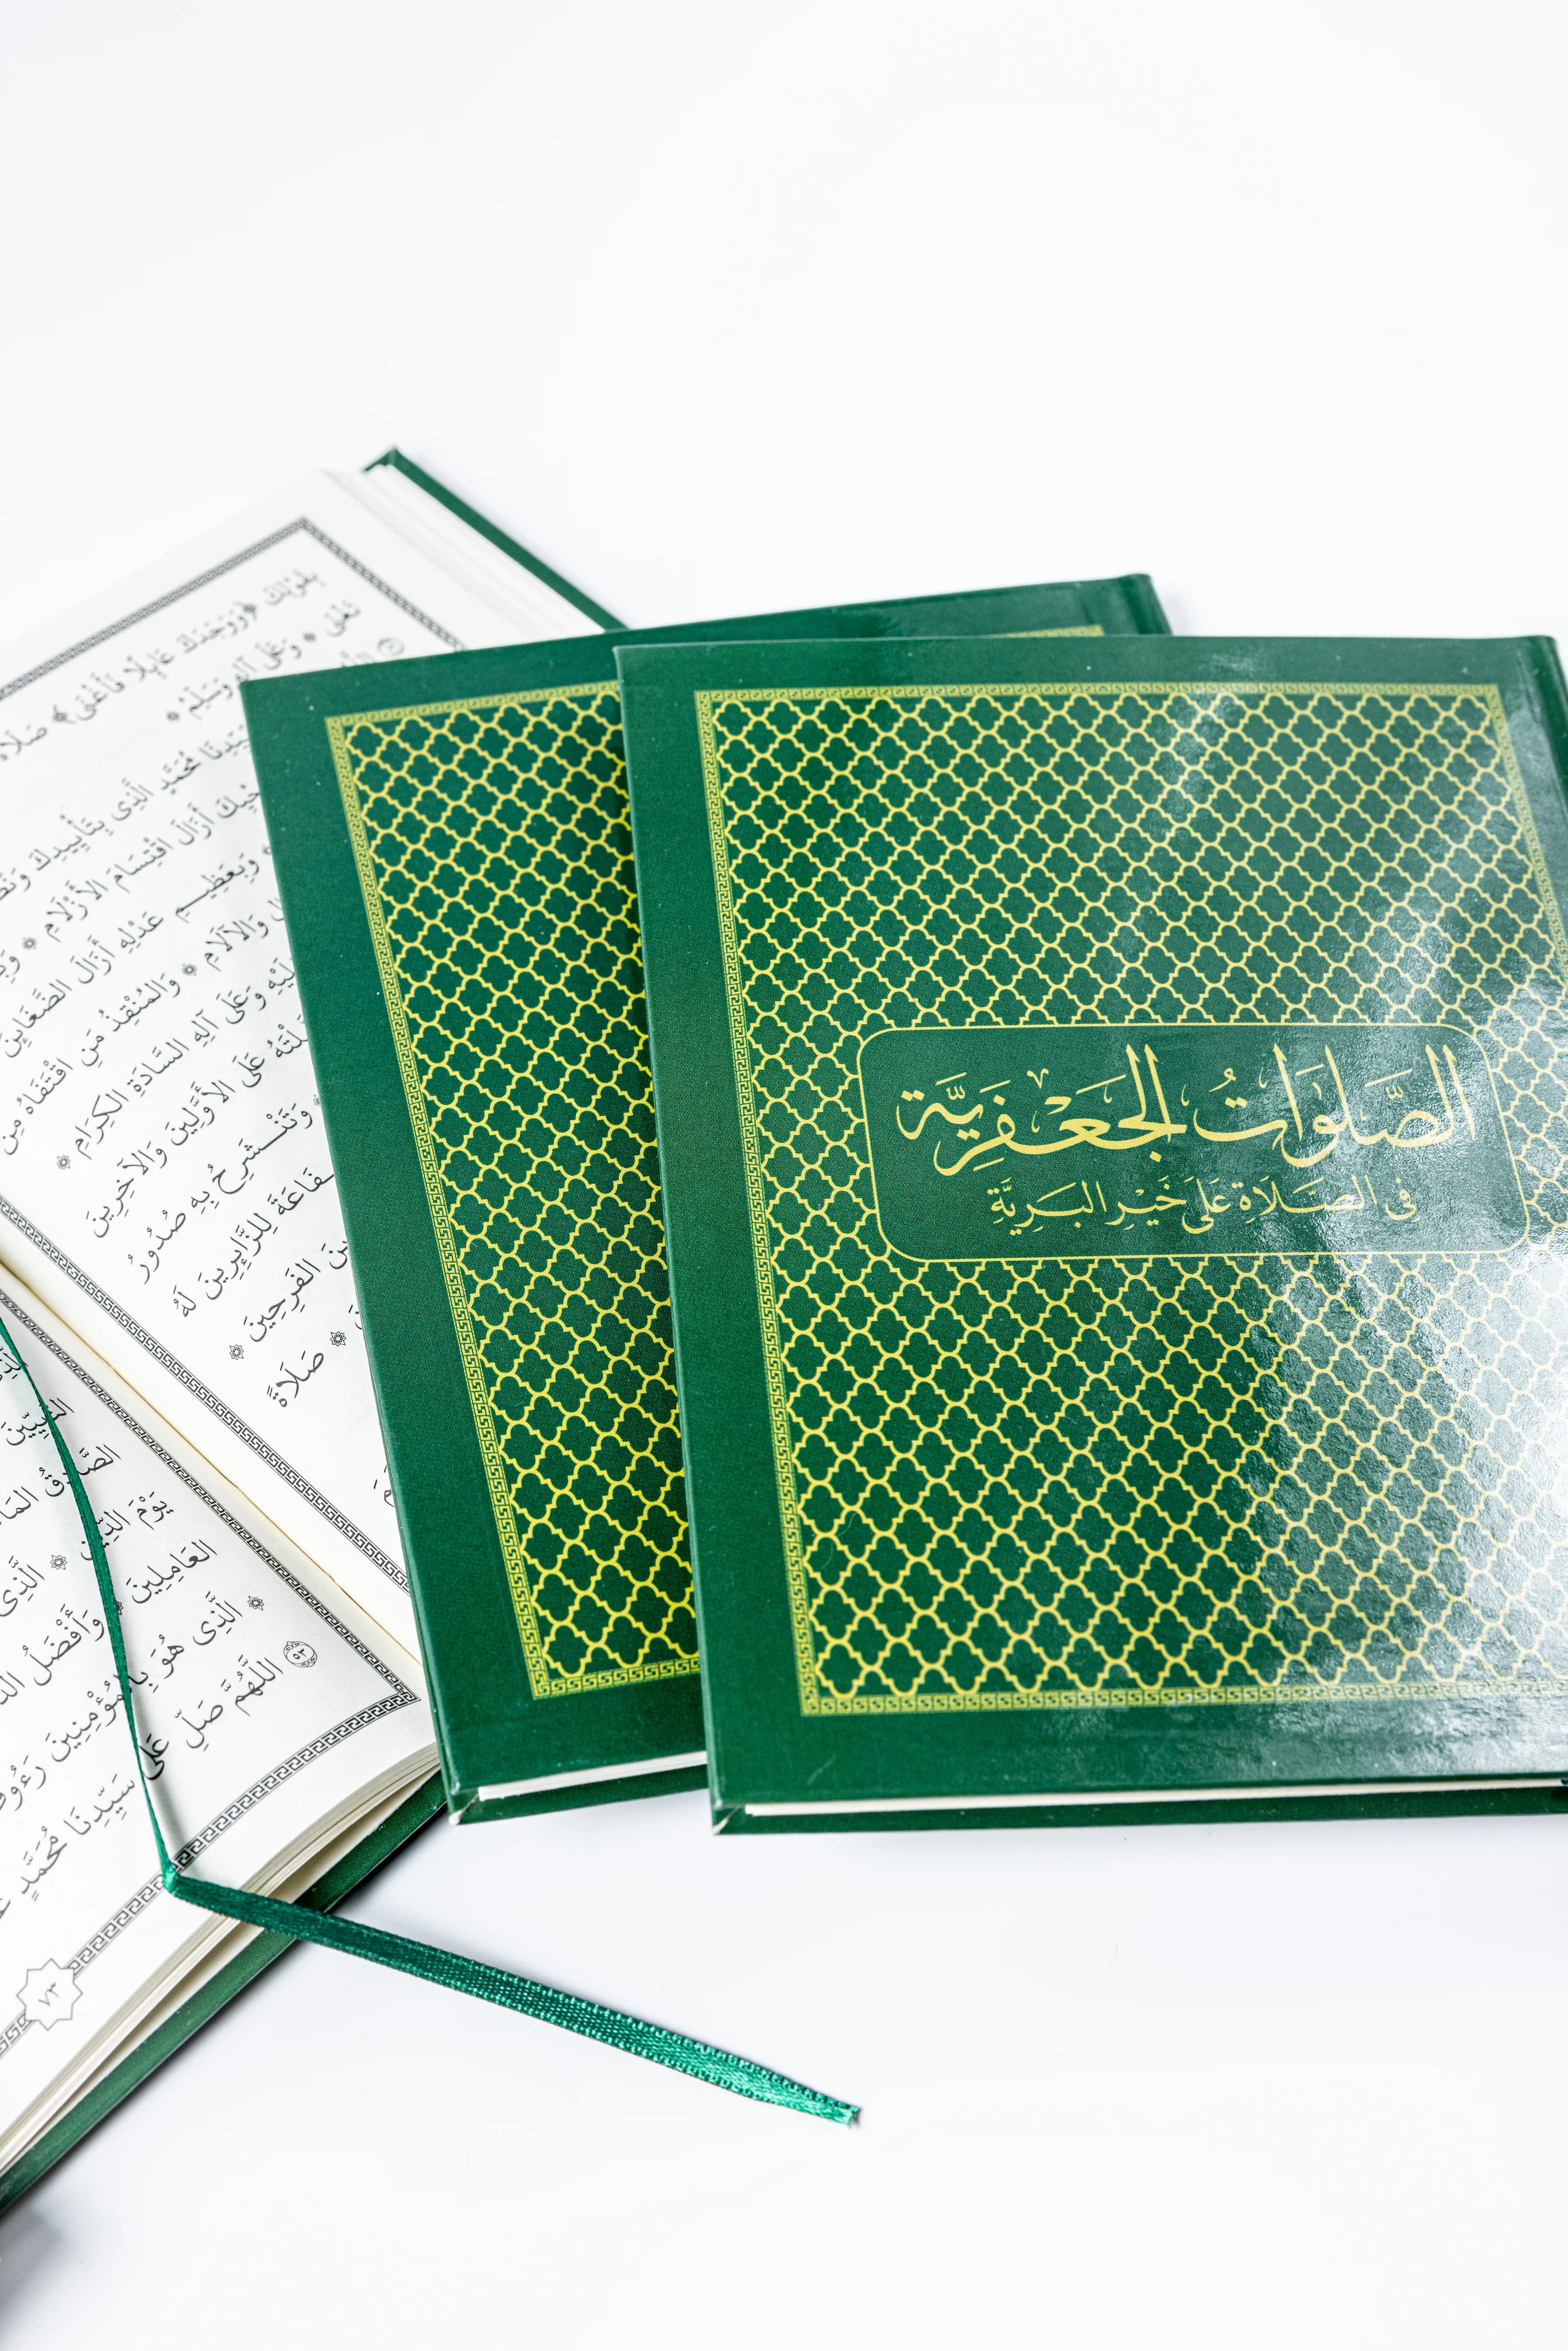 الصَّلَوَاتُ الجَعْفَرِيَّة
فى الصَّلَاةِ عَلَى خَيْرِ البَرِيَّة
بِقَوْلِكَ ﴿وَوَجَدَكَ عَآئِلًا فَأَغْنَى﴾ صَلَاةً
تَفْنَى * وَعَلَى آلِهِ وَسَلِّمْ *
مُحَمَّدٍ الَّذِى بِتَأْيِيدِكَ
أَزَالَ اقْتِسَامَ الأَزْلَامِ *
وَبِعَظِيمِ عَدْلِهِ أَزَالَ الضَّغَائِنَ
وَالآلَامِ * وَالمُنْقِذُ مَنِ اقْتَفَاهُ مِنَ
وَعَلَى آلِهِ السَّادَةِ الكِرَامِ *
عَلَى الأَوَّلِينَ وَالآخِرِينَ
* وَتَنْشَرِحُ بِهِ صُدُورُ
لِلزَّائِرِينَ لَهُ
الفَرِحِينَ *
* صَلَاةً
النَّبِيِّينَ
الصَّادِقُ
يَوْمَ الدِّينِ * الَّذِى
العَامِلِينَ * وَأَفْضَلُ
الَّذِى هُوَ بِالمُؤْمِنِينَ
٥٣ اللَّهُمَّ صَلِّ عَلَى سَيِّدِنَا مُحَمَّدٍ
٧٣